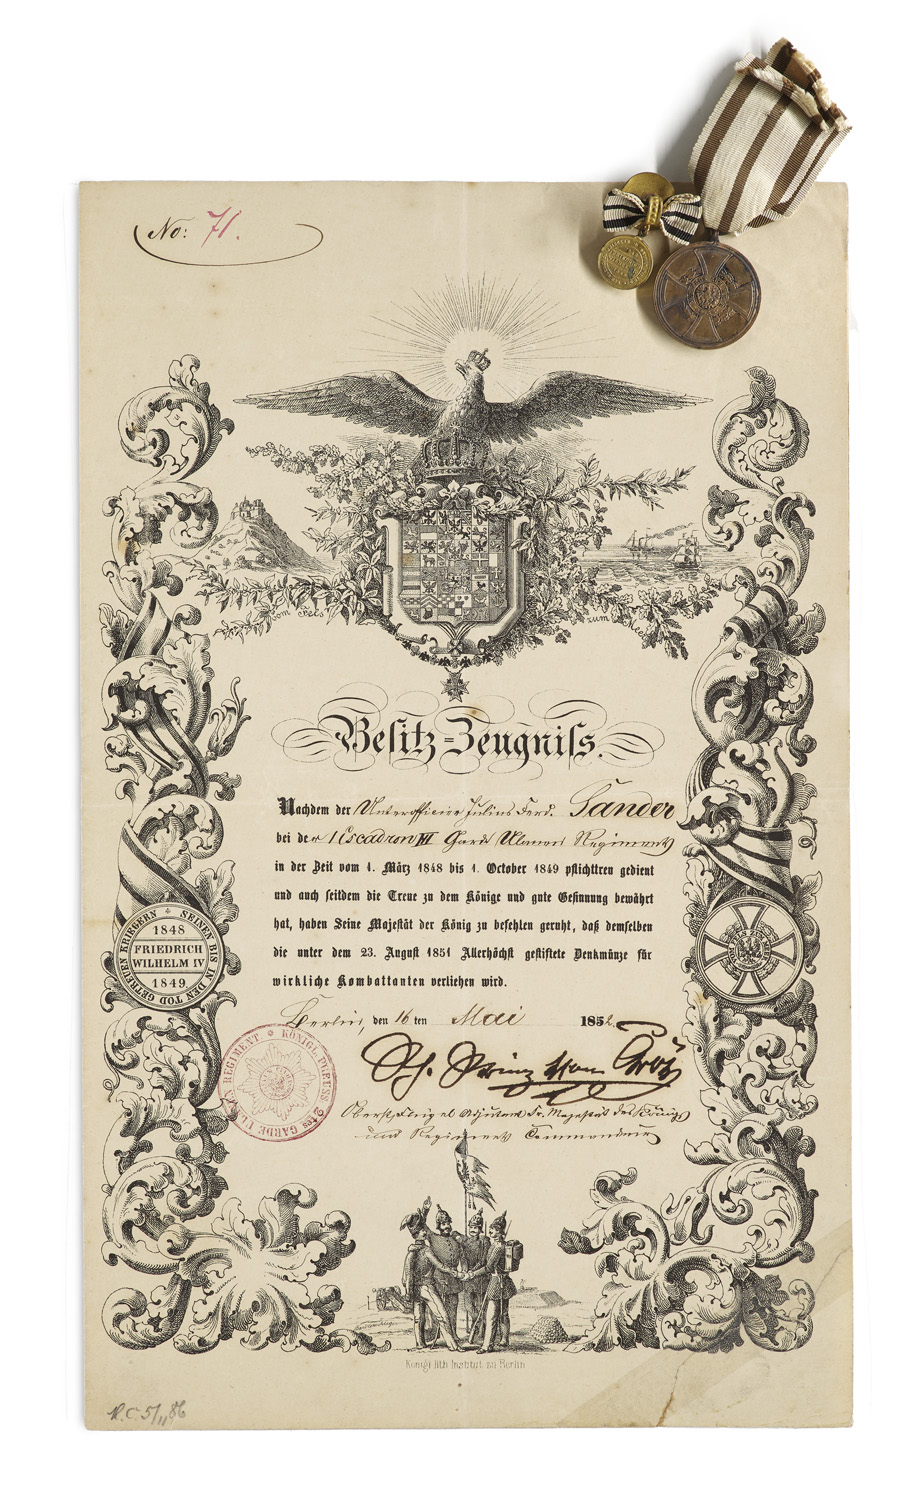 No: 71.
vom Fels
zum Meer
Besitz-Zeugniſs.
Nachdem der Unterofficier Julius Ferd. Sander
bei der 1 Escadron Garde Ulanen Regiments
in der Zeit vom 1. März 1848 bis 1. October 1849 pflichttreu gedient
und auch ſeitdem die Treue zu dem Könige und gute Geſinnung bewährt
hat, haben Seine Majeſtät der König zu befehlen geruht, daß demſelben
die unter dem 23. Auguſt 1851 Allerhöchſt geſtiftete Denkmünze für
wirkliche Kombattanten verliehen wird.
SEINEN BIS IN DEN TOD GETREUEN KRIEGERN
1848
FRIEDRICH
WILHELM IV
1849
Berlin, den 16 ten Mai 1852.
KÖNIGL. PREUSS. 2tes GARDE REGIMENT
Prinz
Oberst, Flügel Adjutant Sr. Majestät des Königs
und Regiments Commandeur
Königl lith Institut zu Berlin